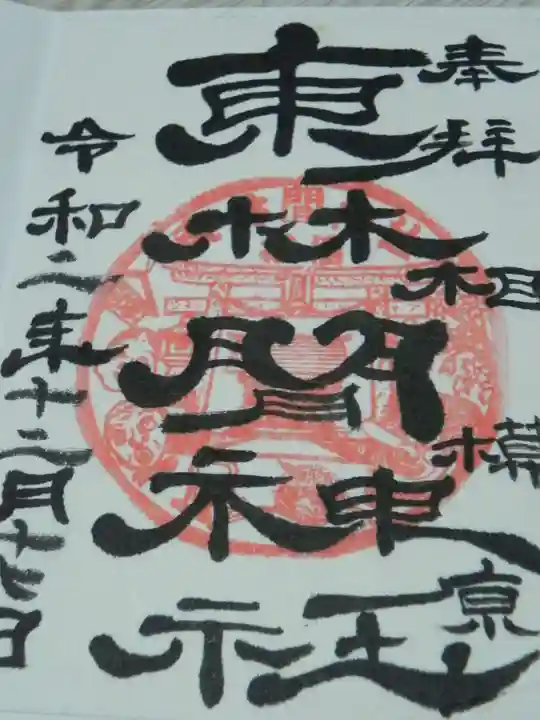 奉拝
相模原
東林間神社
令和二年十二月十七日